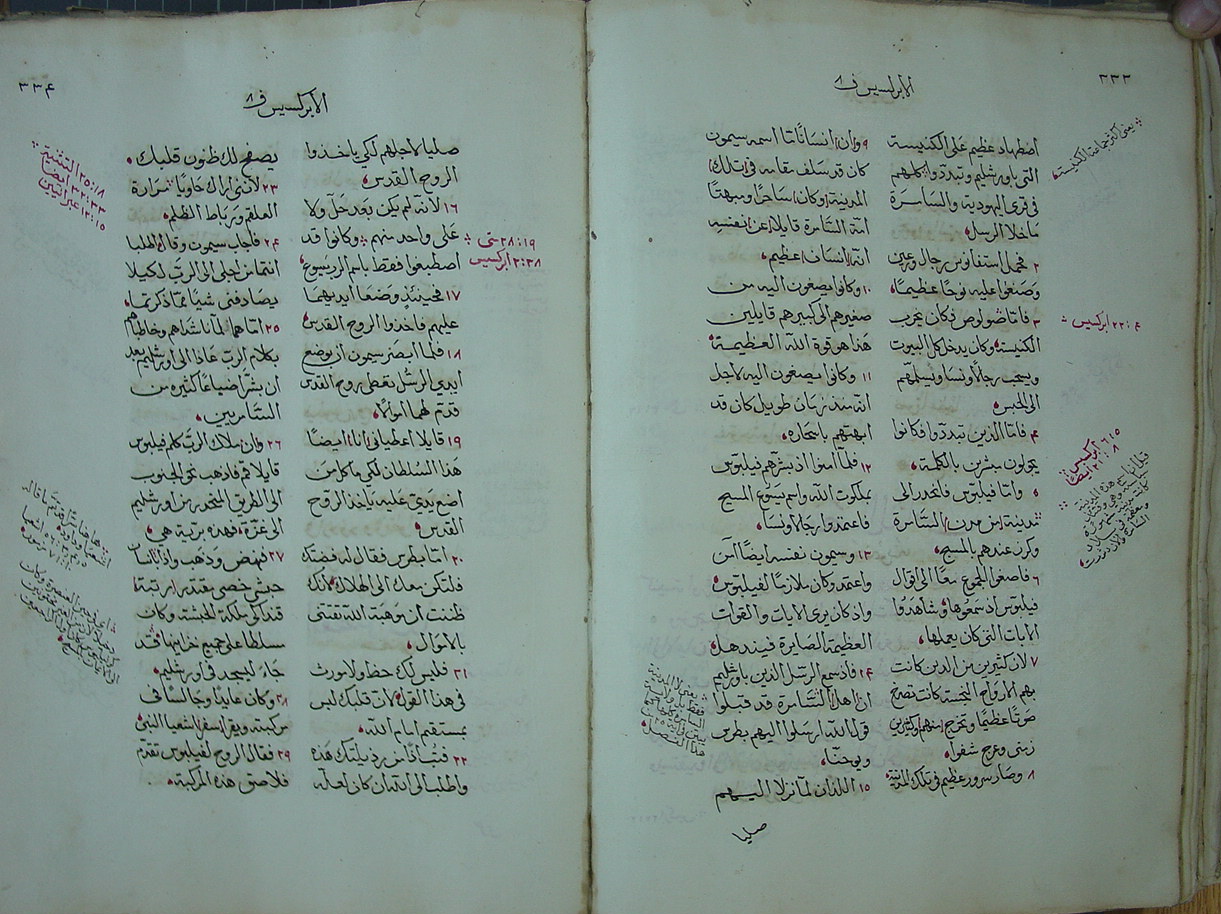 ٣٣٣
الابركسيس ف ٨
اضطهاد عظيم على الكنيسة
التي باورشليم وتبددوا كلهم
في قرى اليهودية والسامرة
ماخلا الرسل
٢ فحمل استفانوس رجال ورعين
وصنعوا عليه نوحًا عظيمًا
٣ فاما شولوص فكان يخرب
الكنيسة وكان يدخل كل البيوت
ويسحب رجالًا ونسا ويسلمهم
الى الحبس
٤ فاما الذين تبددوا فكانوا
يجولون مبشرين بالكلمة
٥ واما فيلبوس فانحدر الى
مدينة من مدن السامرة
وكرز عندهم بالمسيح
٦ فاصغوا الجموع معًا الى اقوال
فيلبوس اذ سمعوها وشاهدوا
الايات التي كان يعملها
٧ لان كثيرين من الذين كانت
بهم الارواح النجسة كانت تصيح
صوتًا عظيمًا وتخرج منهم وكثيرين
زمنى وعرج شفوا
٨ وصار سرور عظيم في تلك المدينة
٩ وان انسانًا ما اسمه سيمون
كان قد سلف مقامه في تلك
المدينة وكان ساحرًا ومبهتًا
امة السامرة قايلا عن نفسه
انه انسان عظيم
١٠ وكانوا يصغون اليه من
صغيرهم الى كبيرهم قايلين
هذا هو قوة الله العظيمة
١١ وكانوا يصغون اليه لاجل
انه منذ زمان طويل كان قد
ابهتهم باسحاره
١٢ فلما امنوا اذ بشرهم فيلبوس
بملكوت الله واسم يسوع المسيح
فاعتمدوا رجالًا ونسا
١٣ وسيمون نفسه ايضًا امن
واعتمد وكان ملازمًا لفيلبوس
واذ كان يرى الايات والقوات
العظيمة الصايرة فيندهل
١٤ فاذ سمع الرسل الذين باورشليم
ان اهل السامرة قد قبلوا
قول الله ارسلوا اليهم بطرس
ويوحنا
١٥ اللذان لما نزلا اليهم
صليا
٤ : ٢٢ ابركسيس
٣٣٤
الابركسيس ف ٨
صليا لاجلهم لكي ياخذوا
الروح القدس
١٦ لانه لم يكن بعد حل ولا
على واحد منهم وكانوا قد
اصطبغوا فقط باسم الرب يسوع
١٧ فحينئذٍ وضعا ايديهما
عليهم فاخذوا الروح القدس
١٨ فلما ابصر سيمون ان بوضع
ايدي الرسل يعطى روح القدس
قدم لهما اموالًا
١٩ قايلا اعطياني انا ايضًا
هذا السلطان لكي ما كل من
اضع يدي عليه ياخذ الروح
القدس
٢٠ اما بطرس فقال له فضتك
فلتكن معك الى الهلاك لانك
ظننت ان موهبة الله تقتنى
بالاموال
٢١ فليس لك حظ ولا مورث
في هذا القول لان قلبك ليس
بمستقيم امام الله
٢٢ فتب اذًا من رذيلتك هذه
واطلب الى الله ان كان لعله
يصفح لك ظنون قلبك
٢٣ لانني اراك حاويًا مرارة
العلقم ورباط الظلم
٢٤ فاجاب سيمون وقال اطلبا
انتما من اجلي الى الرب لكيلا
يصادفني شيًا مما ذكرتما
٢٥ اما هما لما ناشداهم وخاطباهم
بكلام الرب عادا الى اورشليم بعد
ان بشرا ضياعًا كثيره من
السامريين
٢٦ وان ملاك الرب كلم فيلبوس
قايلا قم فاذهب نحو الجنوب
الى الطريق المنحدر من اورشليم
الى غزة فهذه برية هي
٢٧ فنهض وذهب واذا بانسان
حبشي خصي مقتدر
قنداكي ملكة الحبشة وكان
مسلطا على جميع خزاينها قد
جاء ليسجد في اورشليم
٢٨ وكان عايدًا وجالسًا في
مركبته ويقرا سفر اشعيا النبي
٢٩ فقال الروح لفيلبوس تقدم
فلاصق هذه المركبة
١٩ : ٢٨ متى
٣٨ : ٢ ابركسيس
١٨ : ٢٥ التثنية
٣٣ : ٣٢ ايضا
١٥ : ١٢ عبرانيين